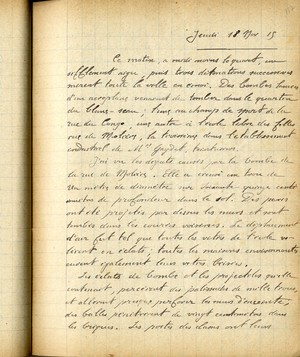 Jeudi 18 Nov 15
Ce matin, à midi moins le quart, un
sifflement aigu, puis trois détonations successives
mirent toute la ville en émoi. Des bombes lancées
d'un aéroplane venaient de tomber dans le quartier
du blanc-seau: l'une au champ de sports de la
rue du Congo, une autre à l'école libre des filles
rue de Molière, la troisième dans l'établissement
industriel de Mr
J'ai vu les dégâts causés par la bombe de
la rue de Molière. Elle a creusé un trou de
un mètre de diamètre sur soixante-quinze centi
mètres de profondeur dans le sol. Des pavés
ont été projetés par dessus les murs et sont
tombés dans les cours voisines. Le déplacement
d'air fut tel que toutes les vitres de l'école vo
lèrent en éclats; toutes les maisons environnantes
eurent également leurs vitres brisées.
Les éclats de bombe et les projectiles qu'elle
contenait, percèrent des palissades de
et allèrent presque perforer les murs d'enceinte,
des balles pénétrèrent de vingt centimètres dans
les briques. Les portes des classes ont leurs